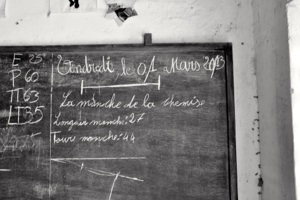 E 25
P 60
TT 63
LT 35
Vendredi, le 01 Mars 2013
La manche de la chemise
Longuir manche: 27
Tours manche: 44